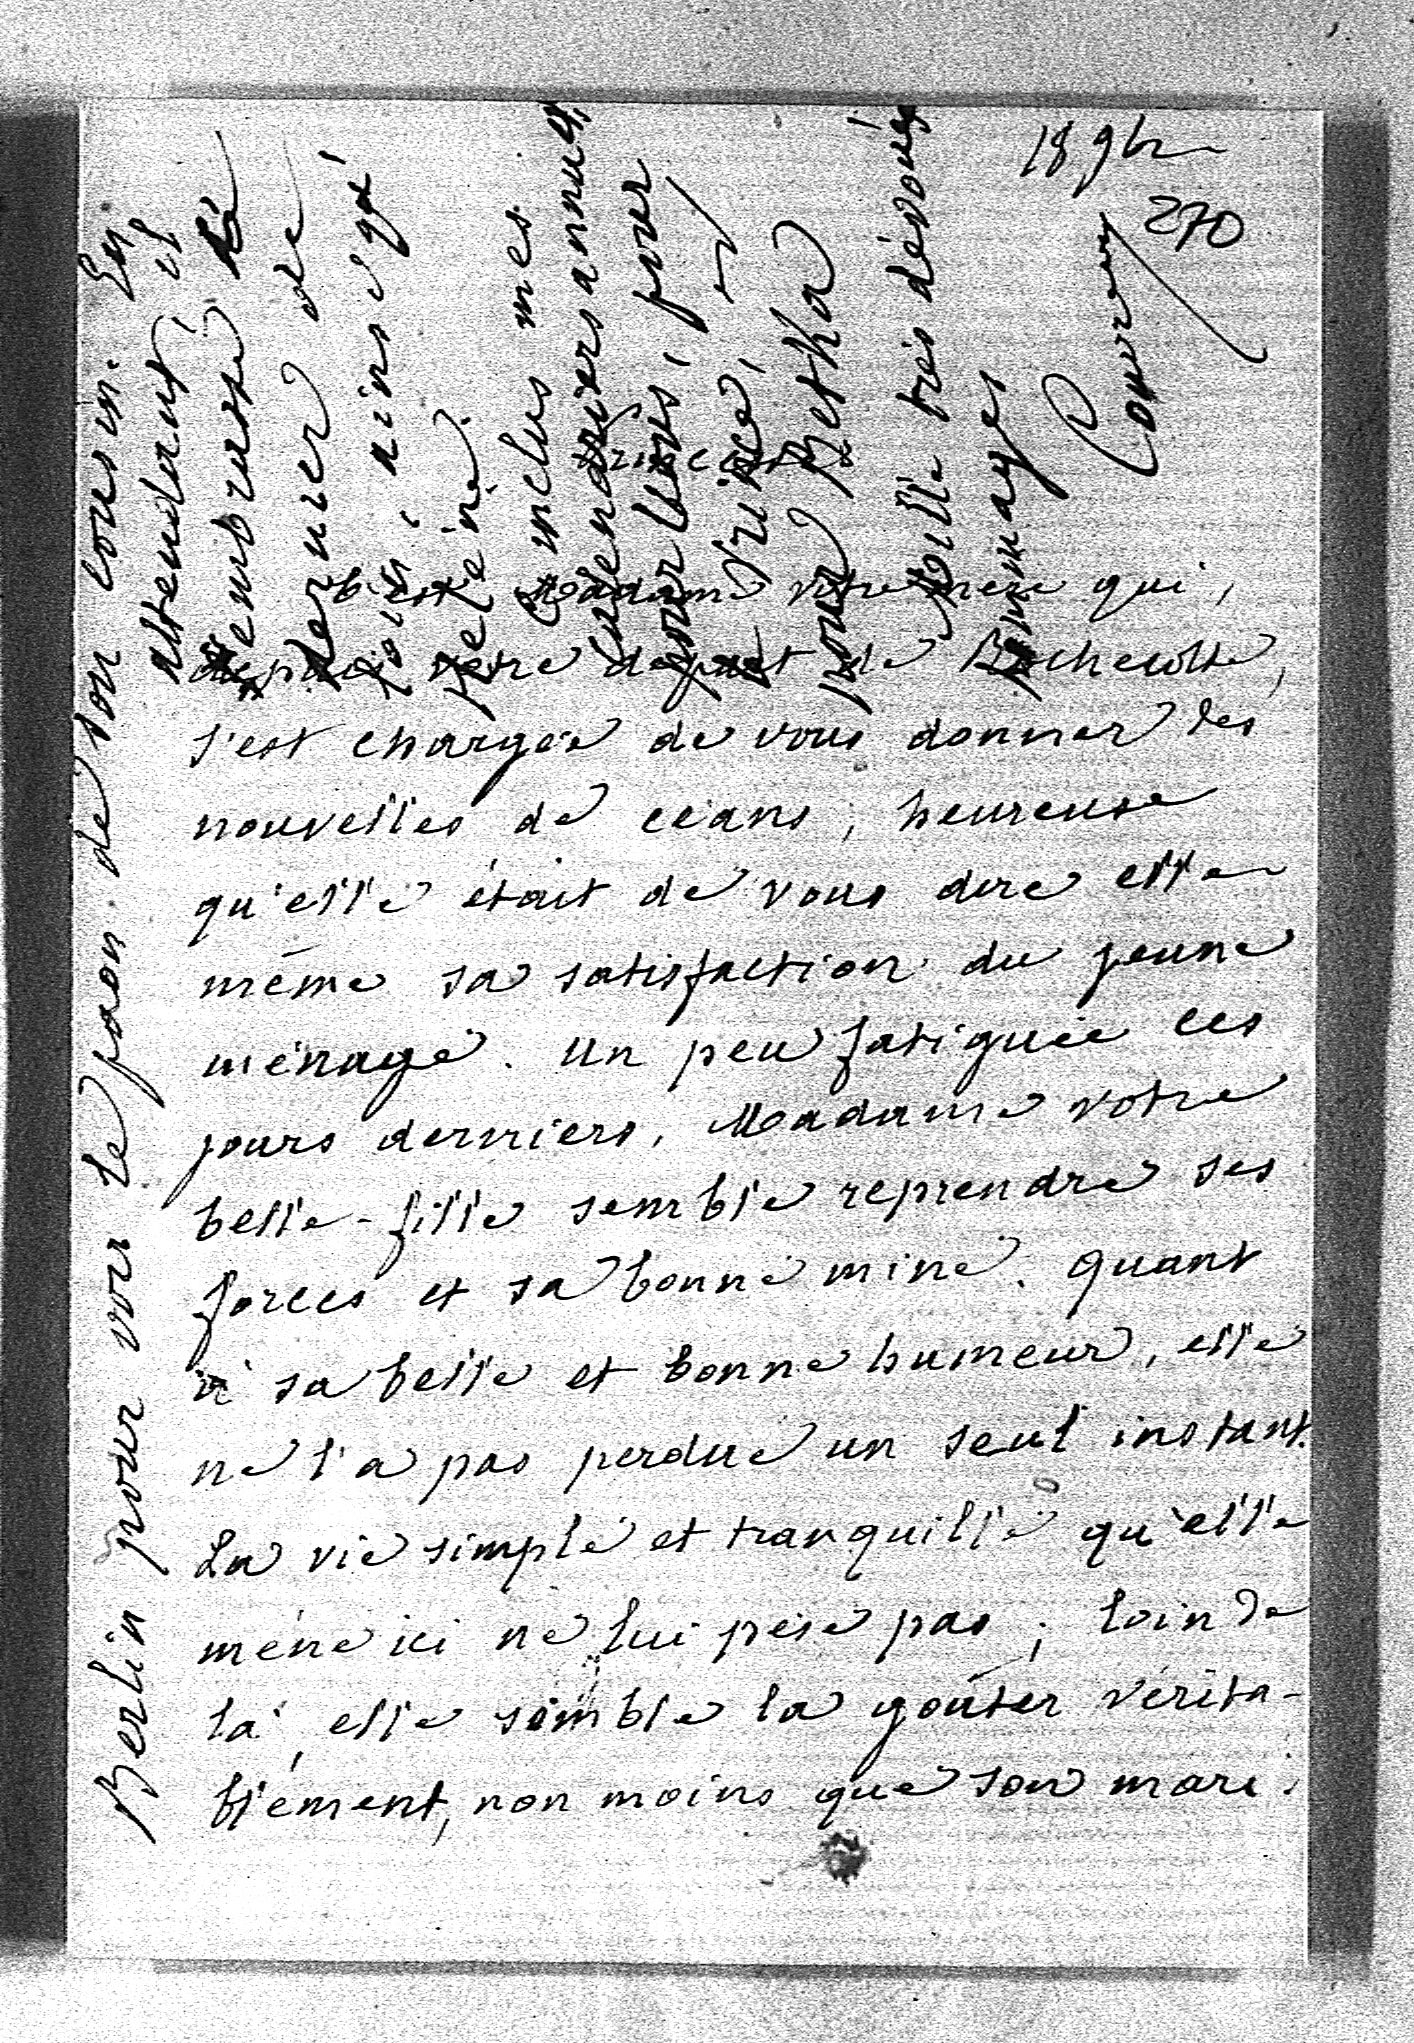 18 9bre
270
Princesse
C'est Madame votre mère qui,
depuis votre départ de Rochecotte,
s'est chargée de vous donner les
nouvelles de céans, heureuse
qu'elle était de vous dire elle
même sa satisfaction du jeune
ménage. Un peu fatiguée ces
jours derniers, Madame votre
belle-fille semble reprendre ses
forces et sa bonne mine. Quant
à sa belle et bonne humeur, elle
ne l'a pas perdue un seul instant.
La vie simple et tranquille qu'elle
mène ici ne lui pèse pas ; loin de
là, elle semble la goûter vérita-
blement, non moins que son mari.
Berlin pour voir le paon de son cousin. En
attendant, il
embrasse le
dernier de
ainsi que
Hélène.
Ci inclus mes
calendriers annuels,
pour vous, pour
le Prince,
pour Bethka
Mille très dévoués
hommages